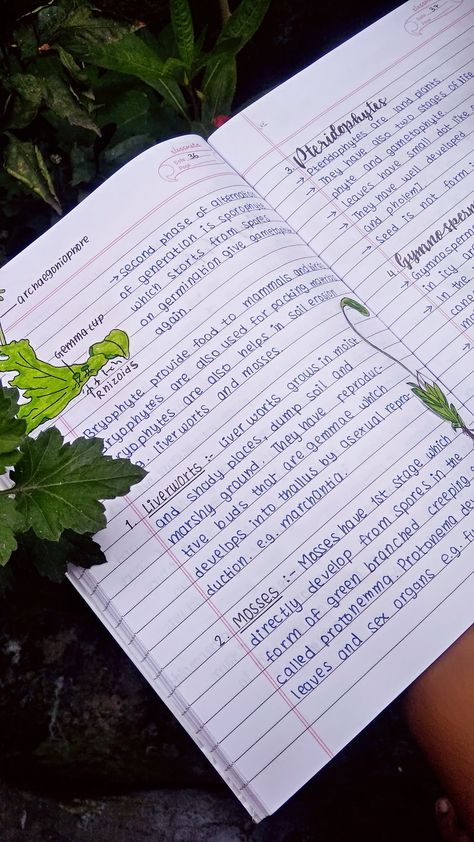 classmate
Date
Page 36
archaegoniophore
→ second phase of alternation
of generation is sporophyte
which starts from spores
on germination give gametophyte
again.
Gemma cup
Rhizoids
Bryophyte provide food to mammals and
Bryophytes are also used for packing material
Bryophytes are also helps in soil erosion
liverworts and mosses.
1. Liverworts :- Liver worts grows in moist
and shady places, dump soil and
marshy ground. They have reproduc-
tive buds that are gemmae which
develops into thallus by asexual repro-
duction. e.g. marchantia.
2. Mosses :- Mosses have 1st stage which
directly develop from spores in the
form of green branched creeping
called protonemna. Protonema de
leaves and sex organs. e.g-
classmate
Date
Page 37
3. Pteridophytes
→ Pteridophytes are land plants
→ They have also two stages of
phyte and gametophyte.
→ Leaves have small dot like
→ They have well developed
and phloem?
→ Seed is not form
4. Gymnosperm
→ Gymnosperm
in icy
→ In the